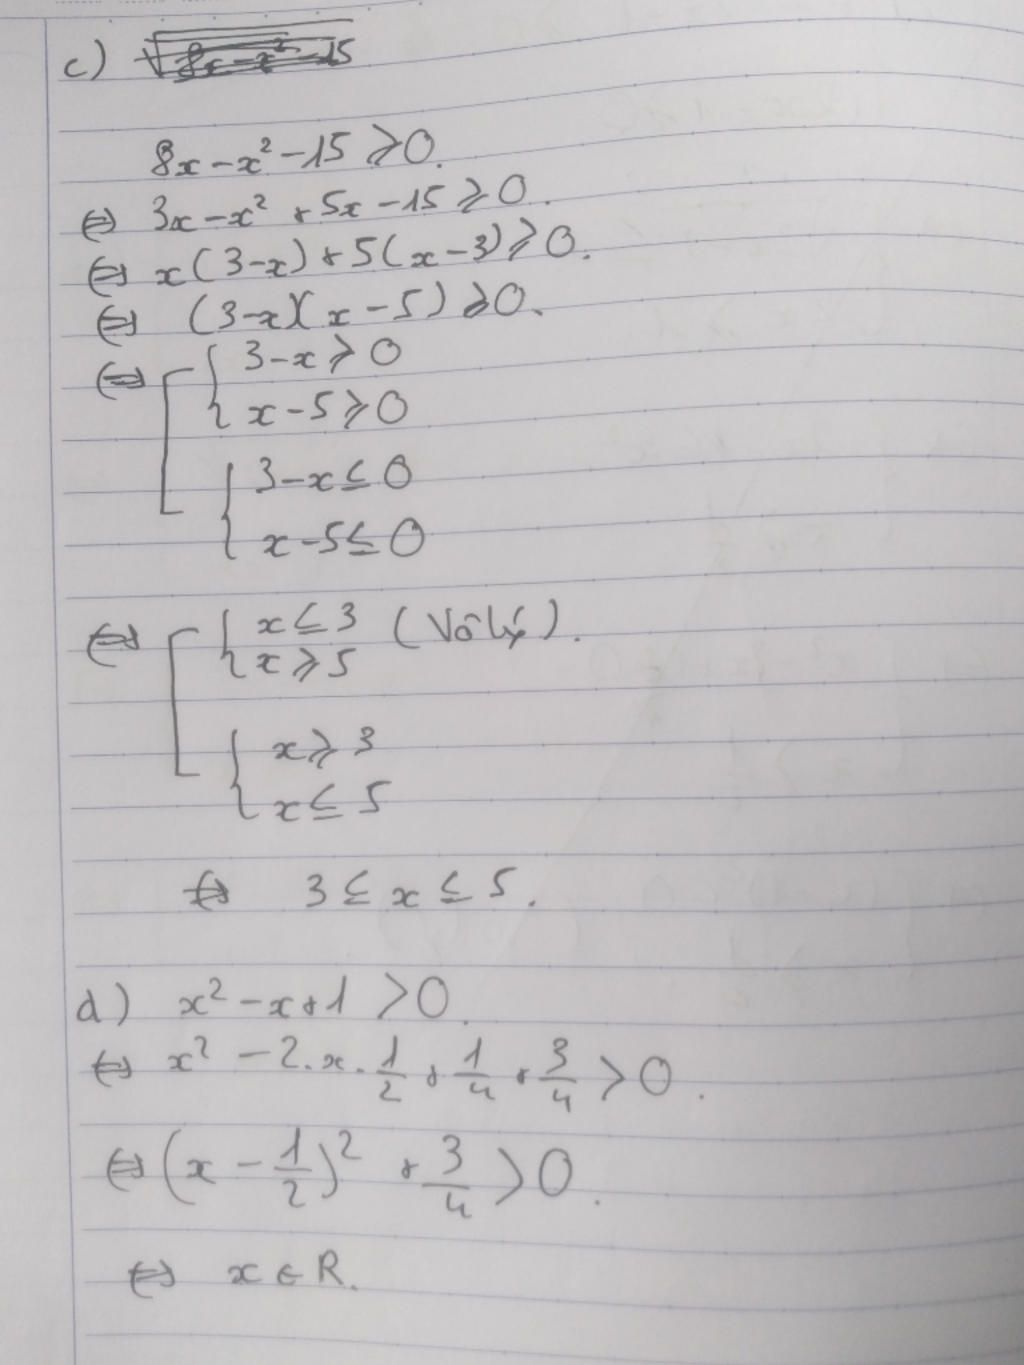 c) √8x-x²-15
8x-x²-15 ⩾0.
⇔ 3x-x² + 5x-15 ⩾ 0.
⇔ x(3-x)+5(x-3)⩾0.
⇔ (3-x)(x-5) ⩾0.
⇔ [ { 3-x ⩾ 0
x-5 ⩾ 0
{ 3-x ≤ 0
x-5 ≤ 0
⇔ [ { x ≤ 3 (Vô lý).
x ⩾ 5
{ x ⩾ 3
x ≤ 5
⇔ 3 ≤ x ≤ 5.
d) x²-x+1 >0.
⇔ x² - 2.x.1/2 + 1/4 + 3/4 >0.
⇔ (x - 1/2)² + 3/4 >0.
⇔ x ∈ R.